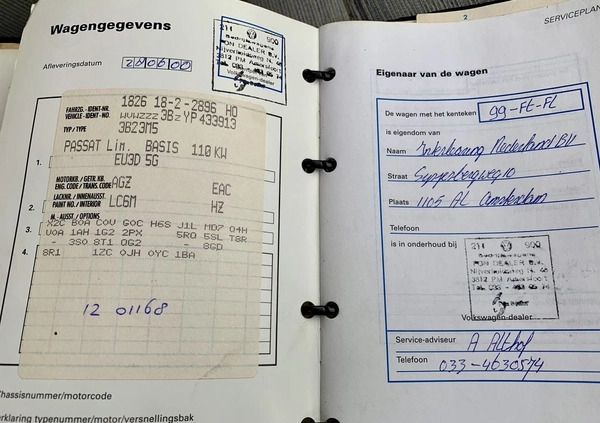 Wagengegevens
Afleveringsdatum 290600
211 900
PON DEALER B.V.
3812 PM Amersfoort
Volkswagen-dealer
FAHRZG.-IDENT-NR. 1826 18-2-2896 HO
VEHICLE-IDENT-NO. WVWZZZ 3BZ YP 433913
TYP/TYPE 3B23M5
PASSAT Lim. BASIS 110 KW
EU3D 5G
1.
MOTORKB./GETR.KB.
ENG.CODE/TRANS.CODE AGZ EAC
LACKNR./INNENAUSST.
PAINT NO./INTERIOR LC6M HZ
2.
M.-AUSST./OPTIONS
X2C B0A C0U G0C H6S J1L MD7 04H
3. V0A 1AH 1G2 2PX 5RQ 5SL T8R
- 3S0 8T1 QG2 - 8GD
4. 8R1 1ZC 0JH 0YC 1BA
12 01168
hassisnummer/motorcode
rklaring typenummer/motor/versnellingsbak
2
SERVICEPLAN
Eigenaar van de wagen
De wagen met het kenteken 99-FE-FL
is eigendom van
Naam Nederland BV
Straat
Plaats 1105 AL Amsterdam
Telefoon
is in onderhoud bij
211 900
PON DEALER B.V.
3812 PM Amersfoort
Volkswagen-dealer
Service-adviseur A Althof
Telefoon 033-4630574